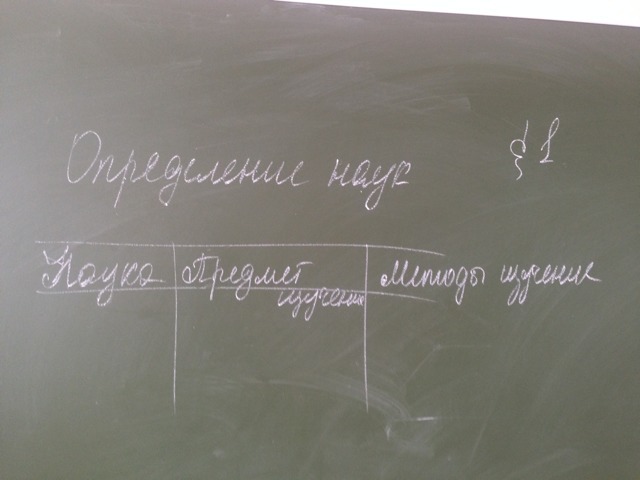 Определение наук § 1
Наука Предмет Методы изучение
изучения